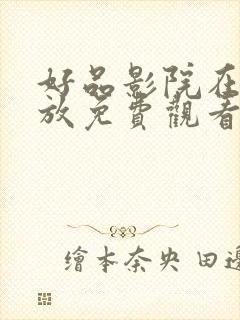 好品影院在
放免費觀看
繪本奈央 田邊